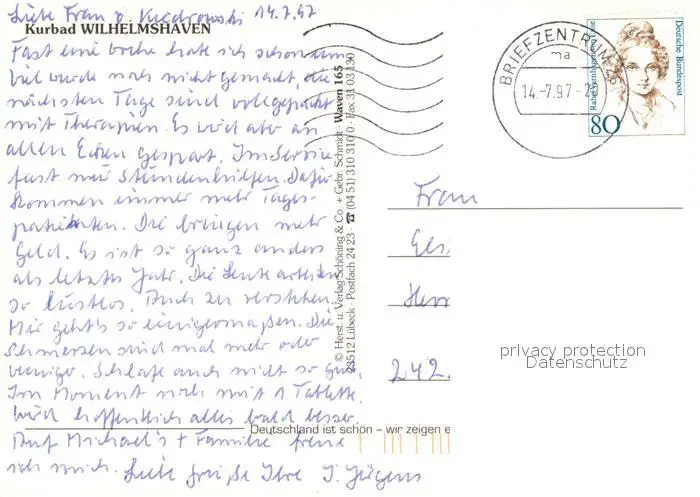 Liebe Frau v. Kiedrowski 14.7.97
Kurbad WILHELMSHAVEN
Fast eine Woche hate sich schon um
viel wurde noch nicht gemacht, die
nächsten Tage sind vollgepackt
mit Therapien. Es wird aber an
allen Ecken gespart. Im Service
fast nur Stundenhilfen. Dafür
kommen immer mehr Tages-
patienten. Die bringen mehr
Geld. Es ist so ganz anders
als letztes Jahr. Die Leute arbeiten
so lustlos. Auch zu verstehen.
Mir geht's so einigermaßen. Die
Schmerzen sind mal mehr oder
weniger. Schlafe auch nicht so gut.
Im Moment noch mit 1 Tablette.
Wird hoffentlich alles bald besser.
Auf Michael's + Familie freue
ich mich. Liebe Grüße Ihre I. Jürgens
© Herst. u. Verlag Schöning & Co. + Gebr. Schmidt · Waven 165
23512 Lübeck · Postfach 24 23 · ☎ (04 51) 310 310 0 · Fax 31 03 130
Deutschland ist schön – wir zeigen e
BRIEFZENTRUM 26
ma
14.-7.97-21
Deutsche Bundespost
80
Frau
Herr
242
privacy protection
Datenschutz